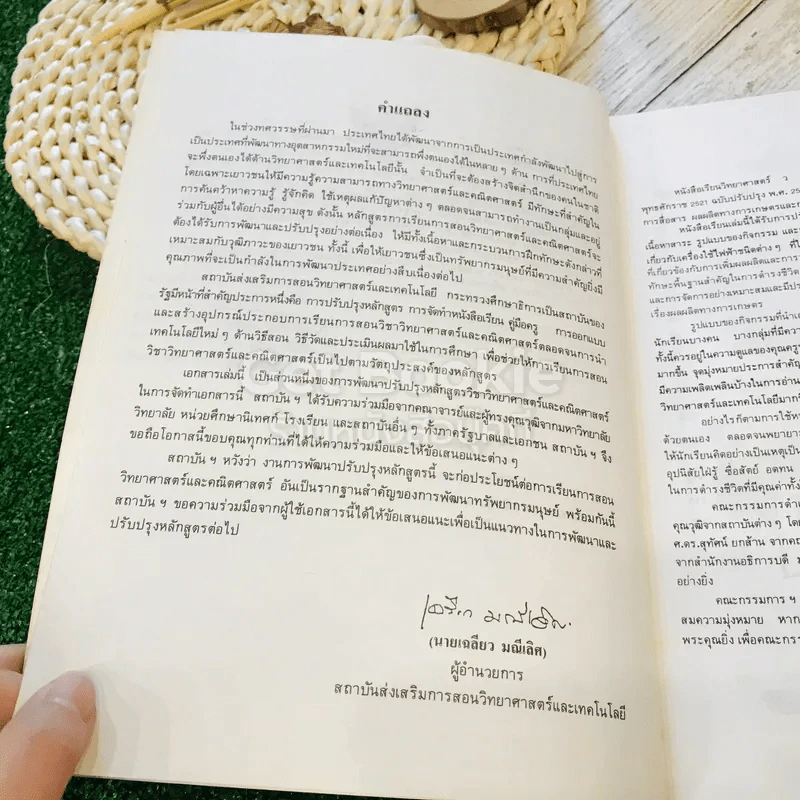 คำแถลง
ในช่วงทศวรรษที่ผ่านมา ประเทศไทยได้พัฒนาจากการเป็นประเทศกำลังพัฒนาไปสู่การ
เป็นประเทศที่พัฒนาทางอุตสาหกรรมใหม่ที่จะสามารถพึ่งตนเองได้ในหลาย ๆ ด้าน การที่ประเทศไทย
จะพึ่งตนเองได้ด้านวิทยาศาสตร์และเทคโนโลยีนั้น จำเป็นที่จะต้องสร้างจิตสำนึกของคนในชาติ
โดยเฉพาะเยาวชนให้มีความรู้ความสามารถทางวิทยาศาสตร์และคณิตศาสตร์ มีทักษะที่สำคัญใน
การค้นคว้าหาความรู้ รู้จักคิด ใช้เหตุผลแก้ปัญหาต่าง ๆ ตลอดจนสามารถทำงานเป็นกลุ่มและอยู่
ร่วมกับผู้อื่นได้อย่างมีความสุข ดังนั้น หลักสูตรการเรียนการสอนวิทยาศาสตร์และคณิตศาสตร์จะ
ต้องได้รับการพัฒนาและปรับปรุงอย่างต่อเนื่อง ให้มีทั้งเนื้อหาและกระบวนการฝึกทักษะดังกล่าวที่
เหมาะสมกับวุฒิภาวะของเยาวชน ทั้งนี้ เพื่อให้เยาวชนซึ่งเป็นทรัพยากรมนุษย์ที่มีความสำคัญยิ่งมี
คุณภาพที่จะเป็นกำลังในการพัฒนาประเทศอย่างสืบเนื่องต่อไป
สถาบันส่งเสริมการสอนวิทยาศาสตร์และเทคโนโลยี กระทรวงศึกษาธิการเป็นสถาบันของ
รัฐมีหน้าที่สำคัญประการหนึ่งคือ การปรับปรุงหลักสูตร การจัดทำหนังสือเรียน คู่มือครู การออกแบบ
และสร้างอุปกรณ์ประกอบการเรียนการสอนวิชาวิทยาศาสตร์และคณิตศาสตร์ตลอดจนการนำ
เทคโนโลยีใหม่ ๆ ด้านวิธีสอน วิธีวัดและประเมินผลมาใช้ในการศึกษา เพื่อช่วยให้การเรียนการสอน
วิชาวิทยาศาสตร์และคณิตศาสตร์เป็นไปตามวัตถุประสงค์ของหลักสูตร
เอกสารเล่มนี้ เป็นส่วนหนึ่งของการพัฒนาปรับปรุงหลักสูตรวิชาวิทยาศาสตร์และคณิตศาสตร์
ในการจัดทำเอกสารนี้ สถาบัน ฯ ได้รับความร่วมมือจากคณาจารย์และผู้ทรงคุณวุฒิจากมหาวิทยาลัย
วิทยาลัย หน่วยศึกษานิเทศก์ โรงเรียน และสถาบันอื่น ๆ ทั้งภาครัฐบาลและเอกชน สถาบัน ฯ จึง
ขอถือโอกาสนี้ขอบคุณทุกท่านที่ได้ให้ความร่วมมือและให้ข้อเสนอแนะต่าง ๆ
สถาบัน ฯ หวังว่า งานการพัฒนาปรับปรุงหลักสูตรนี้ จะก่อประโยชน์ต่อการเรียนการสอน
วิทยาศาสตร์และคณิตศาสตร์ อันเป็นรากฐานสำคัญของการพัฒนาทรัพยากรมนุษย์ พร้อมกันนี้
สถาบัน ฯ ขอความร่วมมือจากผู้ใช้เอกสารนี้ได้ให้ข้อเสนอแนะเพื่อเป็นแนวทางในการพัฒนาและ
ปรับปรุงหลักสูตรต่อไป
(นายเฉลียว มณีเลิศ)
ผู้อำนวยการ
สถาบันส่งเสริมการสอนวิทยาศาสตร์และเทคโนโลยี
หนังสือเรียนวิทยาศาสตร์ ว
พุทธศักราช 2521 ฉบับปรับปรุง พ.ศ. 25
การสื่อสาร ผลผลิตทางการเกษตรและ
หนังสือเรียนเล่มนี้ได้รับการปร
เนื้อหาสาระ รูปแบบของกิจกรรม และ
เกี่ยวกับเครื่องใช้ไฟฟ้าชนิดต่าง ๆ ที่
ที่เกี่ยวข้องกับการเพิ่มผลผลิตและการ
ทักษะพื้นฐานสำคัญในการดำรงชีวิต
และการจัดการอย่างเหมาะสมและมีปร
เรื่องผลผลิตทางการเกษตร
รูปแบบของกิจกรรมที่นำเ
นักเรียนบางคน บางกลุ่มที่มีความ
ทั้งนี้ควรอยู่ในความดูแลของคุณครู
มากขึ้น จุดมุ่งหมายประการสำคัญ
มีความเพลิดเพลินในการอ่าน
วิทยาศาสตร์และเทคโนโลยีมากยิ่
อย่างไรก็ตามการใช้ห
ด้วยตนเอง ตลอดจนพยายา
ให้นักเรียนคิดอย่างเป็นเหตุเป็น
อุปนิสัยใฝ่รู้ ซื่อสัตย์ อดทน
ในการดำรงชีวิตที่มีคุณค่าทั้ง
คณะกรรมการดำเ
คุณวุฒิจากสถาบันต่าง ๆ โด
ศ.ดร.สุทัศน์ ยกส้าน จากค
จากสำนักงานอธิการบดี ม
อย่างยิ่ง
คณะกรรมการ ฯ
สมความมุ่งหมาย หาก
พระคุณยิ่ง เพื่อคณะกร